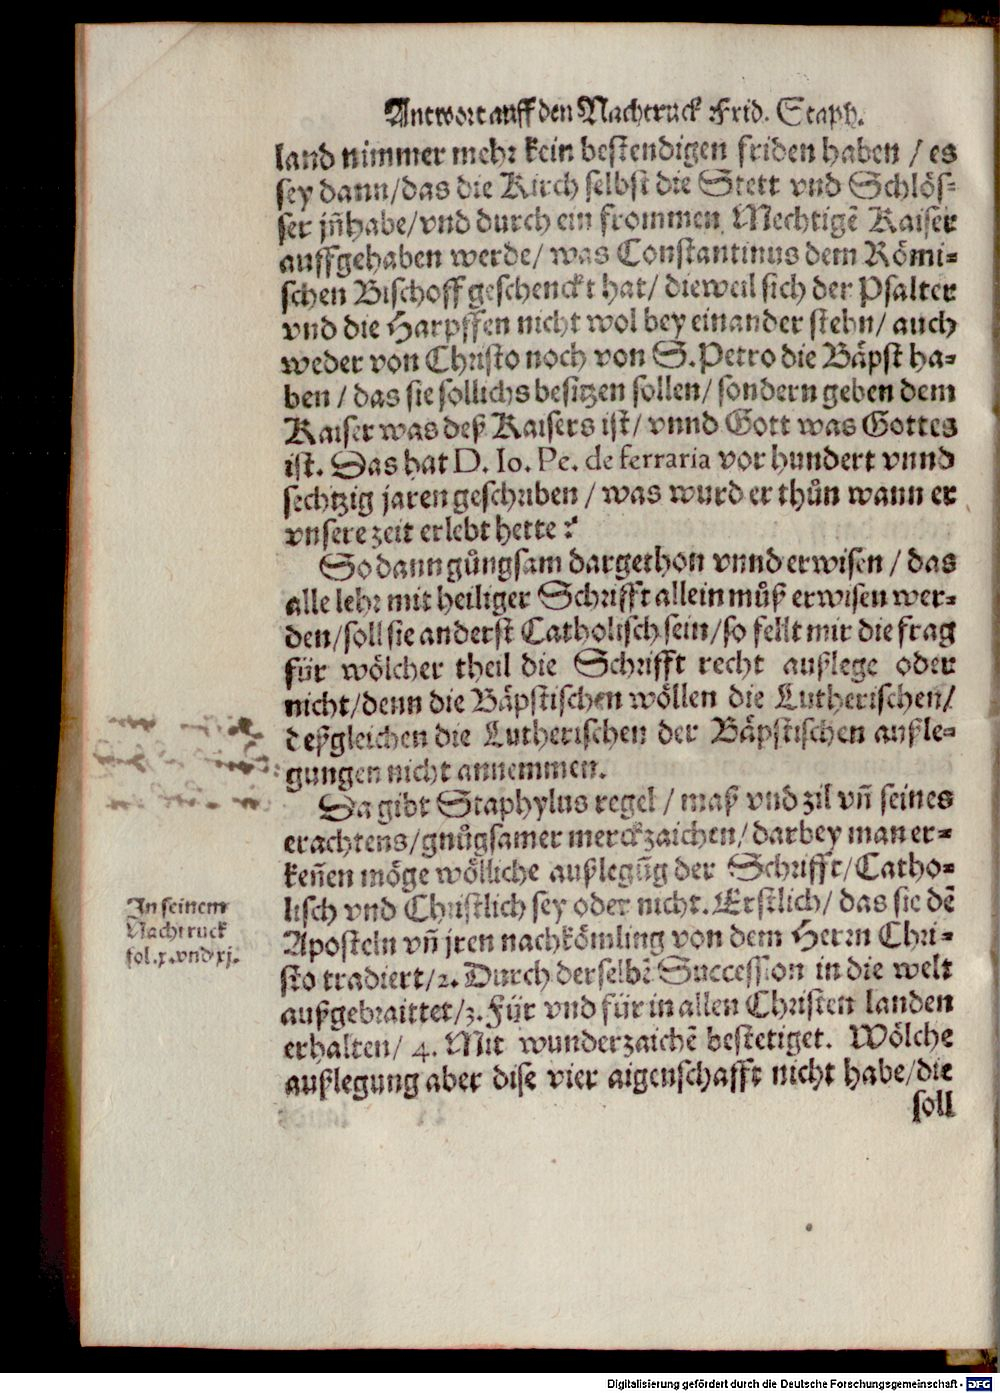 Antwort auff den Nachtruck Frid. Staph.
land nimmer mehr kein bestendigen friden haben / es
sey dann/das die Kirch selbst die Stett vnd Schlös-
ser jñhabe/vnd durch ein frommen Mechtigē Kaiser
auffgehaben werde/ was Constantinus dem Römi-
schen Bischoff geschenckt hat/ dieweil sich der Psalter
vnd die Harpffen nicht wol bey einander stehn/ auch
weder von Christo noch von S. Petro die Bäpst ha-
ben / das sie sollichs besitzen sollen/ sondern geben dem
Kaiser was deß Kaisers ist/ vnnd Gott was Gottes
ist. Das hat D. Io. Pe. de ferraria vor hundert vnnd
sechtzig jaren geschriben / was wurd er thůn wann er
vnsere zeit erlebt hette?
So dann gůngsam dargethon vnnd erwisen / das
alle lehr mit heiliger Schrifft allein můß erwisen wer-
den/soll sie anderst Catholisch sein/so fellt mir die frag
für wölcher theil die Schrifft recht außlege oder
nicht/denn die Bäpstischen wöllen die Lutherischen/
deßgleichen die Lutherischen der Bäpstischen außle-
gungen nicht annemmen.
Da gibt Staphylus regel / maß vnd zil vñ seines
erachtens/gnůgsamer merckzaichen/ darbey man er-
keñen möge wölliche außlegūg der Schrifft/ Catho-
lisch vnd Christlich sey oder nicht. Erstlich/ das sie dē
Aposteln vñ jren nachkömling von dem Herrn Chri-
sto tradiert/2. Durch derselbē Succession in die welt
außgebraittet/3. Für vnd für in allen Christen landen
erhalten/ 4. Mit wunderzaichē bestetiget. Wölche
außlegung aber dise vier aigenschafft nicht habe/die
soll
In seinem
Nachtruck
fol.x.vnd xj.
Digitalisierung gefördert durch die Deutsche Forschungsgemeinschaft - DFG